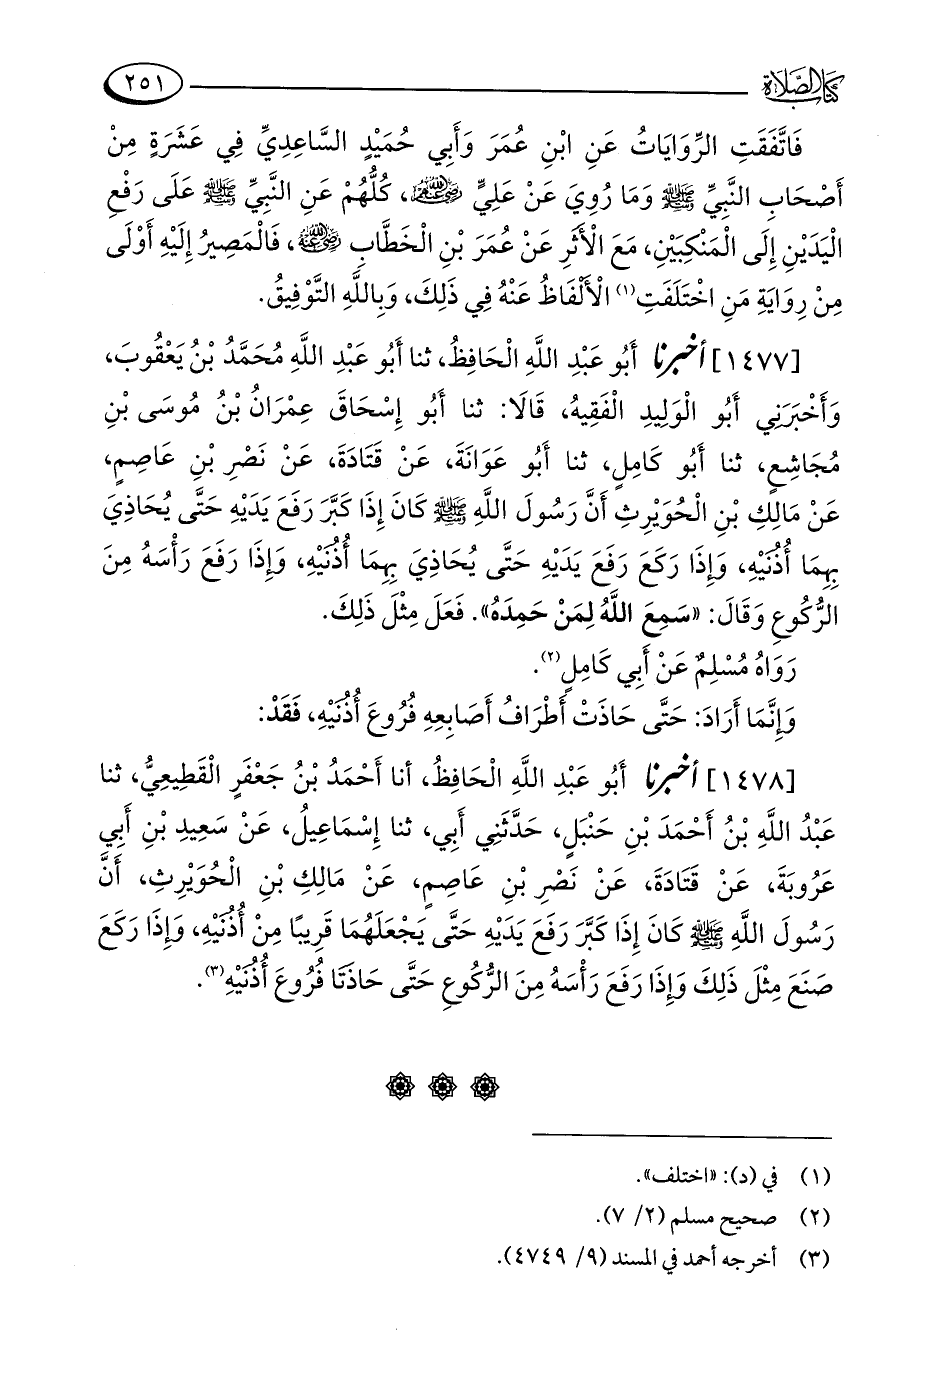 كتاب الصلاة ٢٥١
فَاتَّفَقَتِ الرِّوَايَاتُ عَنِ ابْنِ عُمَرَ وَأَبِي حُمَيْدٍ السَّاعِدِيِّ فِي عَشَرَةٍ مِنْ
أَصْحَابِ النَّبِيِّ ﷺ وَمَا رُوِيَ عَنْ عَلِيٍّ رضي الله عنهم، كُلُّهُمْ عَنِ النَّبِيِّ ﷺ عَلَى رَفْعِ
الْيَدَيْنِ إِلَى الْمَنْكِبَيْنِ، مَعَ الْأَثَرِ عَنْ عُمَرَ بْنِ الْخَطَّابِ رضي الله عنه، فَالْمَصِيرُ إِلَيْهِ أَوْلَى
مِنْ رِوَايَةِ مَنِ اخْتَلَفَتِ(١) الْأَلْفَاظُ عَنْهُ فِي ذَلِكَ، وَبِاللَّهِ التَّوْفِيقُ.
[١٤٧٧] أخبرنا أَبُو عَبْدِ اللَّهِ الْحَافِظُ، ثنا أَبُو عَبْدِ اللَّهِ مُحَمَّدُ بْنُ يَعْقُوبَ،
وَأَخْبَرَنِي أَبُو الْوَلِيدِ الْفَقِيهُ، قَالَا: ثنا أَبُو إِسْحَاقَ عِمْرَانُ بْنُ مُوسَى بْنِ
مُجَاشِعٍ، ثنا أَبُو كَامِلٍ، ثنا أَبُو عَوَانَةَ، عَنْ قَتَادَةَ، عَنْ نَصْرِ بْنِ عَاصِمٍ،
عَنْ مَالِكِ بْنِ الْحُوَيْرِثِ أَنَّ رَسُولَ اللَّهِ ﷺ كَانَ إِذَا كَبَّرَ رَفَعَ يَدَيْهِ حَتَّى يُحَاذِيَ
بِهِمَا أُذُنَيْهِ، وَإِذَا رَكَعَ رَفَعَ يَدَيْهِ حَتَّى يُحَاذِيَ بِهِمَا أُذُنَيْهِ، وَإِذَا رَفَعَ رَأْسَهُ مِنَ
الرُّكُوعِ وَقَالَ: «سَمِعَ اللَّهُ لِمَنْ حَمِدَهُ». فَعَلَ مِثْلَ ذَلِكَ.
رَوَاهُ مُسْلِمٌ عَنْ أَبِي كَامِلٍ(٢).
وَإِنَّمَا أَرَادَ: حَتَّى حَاذَتْ أَطْرَافُ أَصَابِعِهِ فُرُوعَ أُذُنَيْهِ، فَقَدْ:
[١٤٧٨] أخبرنا أَبُو عَبْدِ اللَّهِ الْحَافِظُ، أنا أَحْمَدُ بْنُ جَعْفَرٍ الْقَطِيعِيُّ، ثنا
عَبْدُ اللَّهِ بْنُ أَحْمَدَ بْنِ حَنْبَلٍ، حَدَّثَنِي أَبِي، ثنا إِسْمَاعِيلُ، عَنْ سَعِيدِ بْنِ أَبِي
عَرُوبَةَ، عَنْ قَتَادَةَ، عَنْ نَصْرِ بْنِ عَاصِمٍ، عَنْ مَالِكِ بْنِ الْحُوَيْرِثِ، أَنَّ
رَسُولَ اللَّهِ ﷺ كَانَ إِذَا كَبَّرَ رَفَعَ يَدَيْهِ حَتَّى يَجْعَلَهُمَا قَرِيبًا مِنْ أُذُنَيْهِ، وَإِذَا رَكَعَ
صَنَعَ مِثْلَ ذَلِكَ وَإِذَا رَفَعَ رَأْسَهُ مِنَ الرُّكُوعِ حَتَّى حَاذَتَا فُرُوعَ أُذُنَيْهِ(٣).
(١) في (د): «اختلف».
(٢) صحيح مسلم (٢/ ٧).
(٣) أخرجه أحمد في المسند (٩/ ٤٧٤٩).